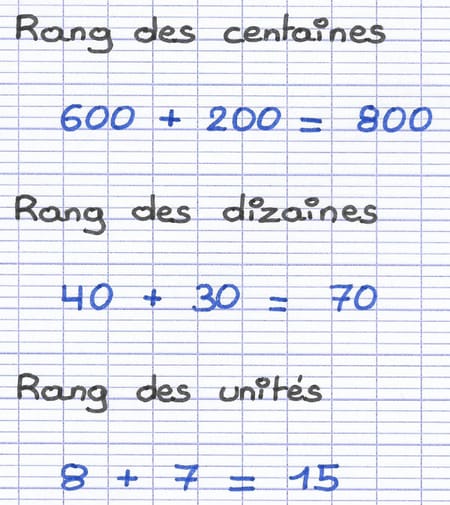 Rang des centaines
600 + 200 = 800
Rang des dizaines
40 + 30 = 70
Rang des unités
8 + 7 = 15